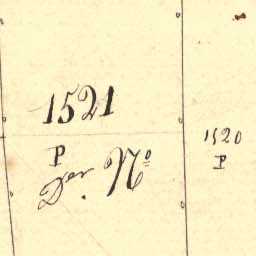 1521
P
Der No
1520
P